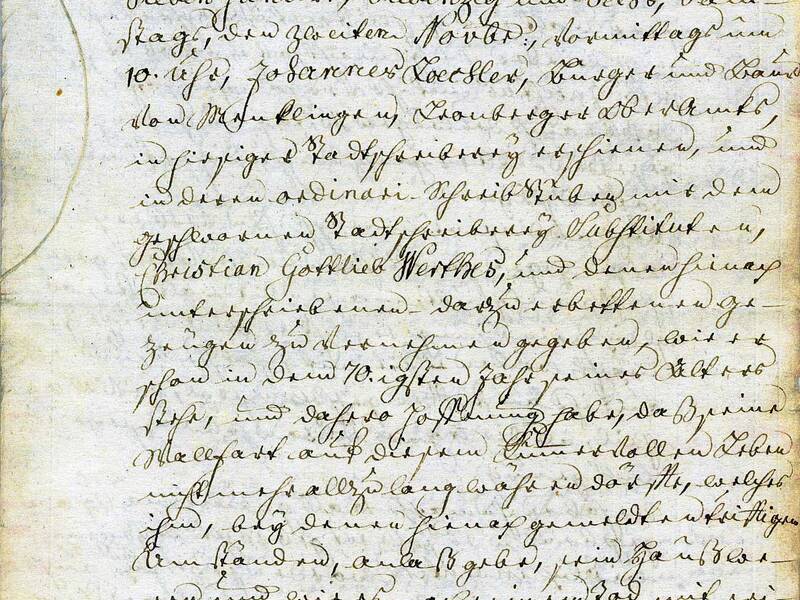 Sieben Hundert, Vierzig und Sechs, Sam-
stags, den zweiten Novbr:, Vormittags um
10. Uhr, Johannes Loechler, Burger und Baur
von Menklingen, Leonberger OberAmts,
in hiesiger Stadtschreiberey erschienen, und
in deren ordinari SchreibStuben mir dem
geschwornen Stadtschreiberey Substituten,
Christian Gottlieb Werthes, und denen hienach
unterschriebenen darzu erbettenen ge-
zeugen zu vernehmen gegeben, wie er
schon in dem 70.igsten Jahr seines Alters
stehe, und dahero Hoffnung habe, daß seine
Wallfart auf diesem Kummervollen Leben
nicht mehr allzu lang währen dörffte, welches
ihm, bey denen hienach gemeldten trifftigen
Umständen, anlaß gebe, sein Hauß